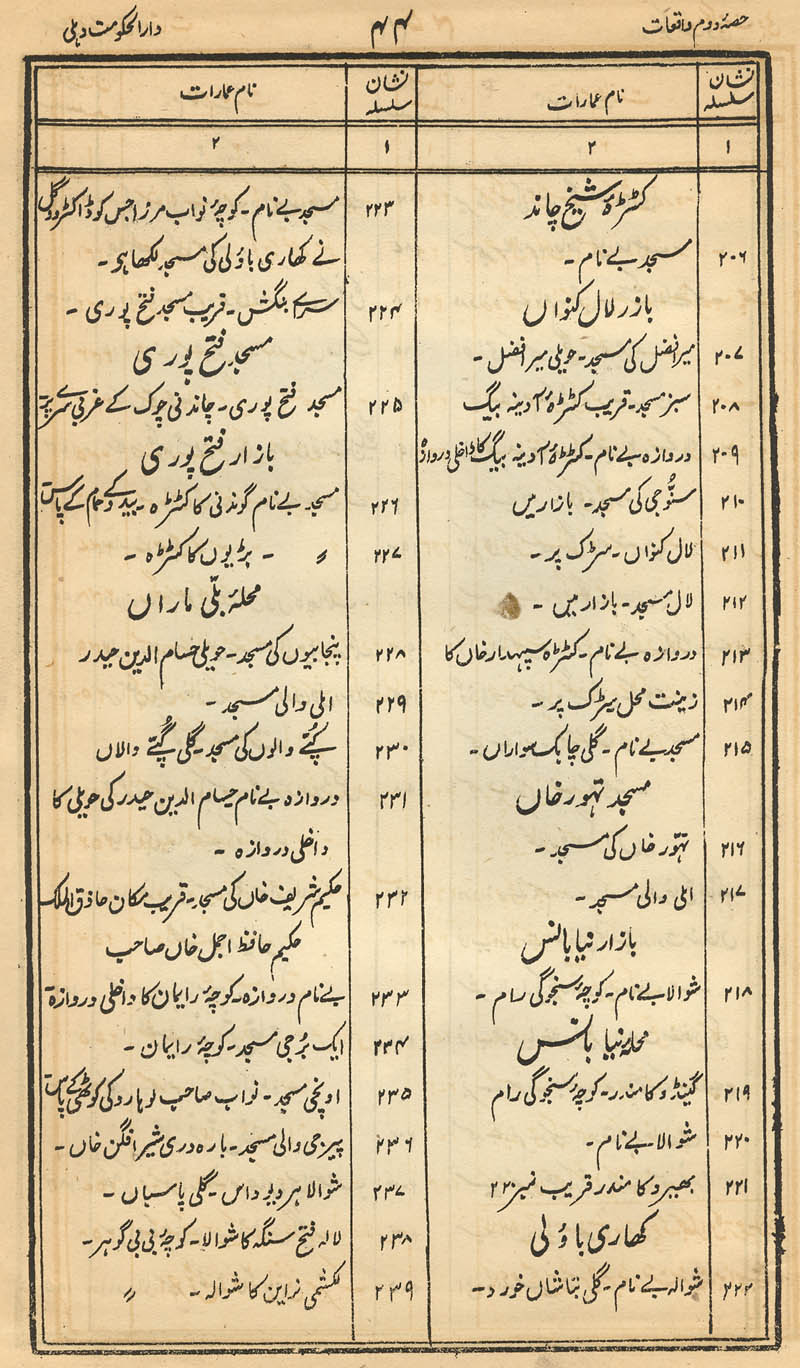 حصۂ دوم واقعات
۴۴
دارالحکومت دہلی
نشان سلسلہ
نام عمارات
۱
۲
کٹڑۂ شیخ چاند
۲۰۶ مسجد بے نام۔
بازر لال کنواں
۲۰۷ میر افضل کی مسجد۔ حویلی میر افضل۔
۲۰۸ سبز مسجد۔ قریب کٹڑۂ آدینہ بیگ
۲۰۹ دروازہ بے نام۔ کٹڑۂ آدینہ بیگ کا داخلی دروازہ
۲۱۰ سنّوجی کی مسجد۔ بازار میں
۲۱۱ لال کنواں۔ سڑک پر۔
۲۱۲ لال مسجد۔ بازار میں۔
۲۱۳ دروازہ بے نام۔ کٹڑہ سپہدار خاں کا
۲۱۴ زینت محل سڑک پر۔
۲۱۵ مسجد بے نام۔ گلی چابک سواراں۔
مسجد تہور خاں
۲۱۶ تہوّر خاں کی مسجد۔
۲۱۷ املی والی مسجد۔
بازار نیا بانس
۲۱۸ شوالا بے نام۔ کوچۂ سنجوگی رام۔
محلہ نیا بانس
۲۱۹ گینڈو کا مندر۔ کوچۂ سنجوگی رام
۲۲۰ شوالا بے نام۔
۲۲۱ بھیرو کا مندر قریب نمبر ۲۲۰
کھاری باؤلی
۲۲۲ شوالہ بے نام۔ گلی بتاشاں خورد۔
نشان سلسلہ
نام عمارات
۱
۲
۲۲۳ مسجد بے نام۔ کوچۂ نواب مرزا جس کو ڈاکٹر ووگل
نے کھاری باؤلی کی مسجد لکھا ہو۔
۲۲۴ سراے بنگش۔ قریب مسجد فتح پوری۔
مسجد فتح پوری
۲۲۵ مسجد فتح پوری۔ چاندنی چوک کے غربی سرے پر
بازار فتح پوری
۲۲۶ مسجد بے نام گوندنی کا کٹڑہ۔ بیدے کے حمام کے پاس
۲۲۷ 〃 ۔ بڑیوں کا کٹڑہ۔
محلۂ بلّی ماراں
۲۲۸ پنجابیوں کی مسجد۔ حویلی حسام الدین حیدر
۲۲۹ املی والی مسجد۔
۲۳۰ کُپّے والوں کی مسجد۔ گلی کُپّے والاں
۲۳۱ دروازہ بے نام حسام الدین حیدر کی حویلی کا
داخلی دروازہ۔
۲۳۲ حکیم شریف خاں کی مسجد۔ قریب مکان حاذق الملک
حکیم حافظ اجمل خاں صاحب
۲۳۳ بے نام دروازہ۔ کوچۂ رایمان کا داخلی دروازۃ
۲۳۴ ایک بُرجی مسجد۔ کوچۂ رایمان۔
۲۳۵ اونچی مسجد۔ نواب صاحب لوہارو کی کوٹھی کے پاس
۲۳۶ پیرجی والی مسجد۔ بارہ دری شیر افگن خاں۔
۲۳۷ شوالا ہر دیو داس۔ گلی پاسباں۔
۲۳۸ لالہ فتح سنگہ کا شوالا۔ کوچۂ بی بی گوہر۔
۲۳۹ لکشمی نراین کا شوالہ۔ 〃